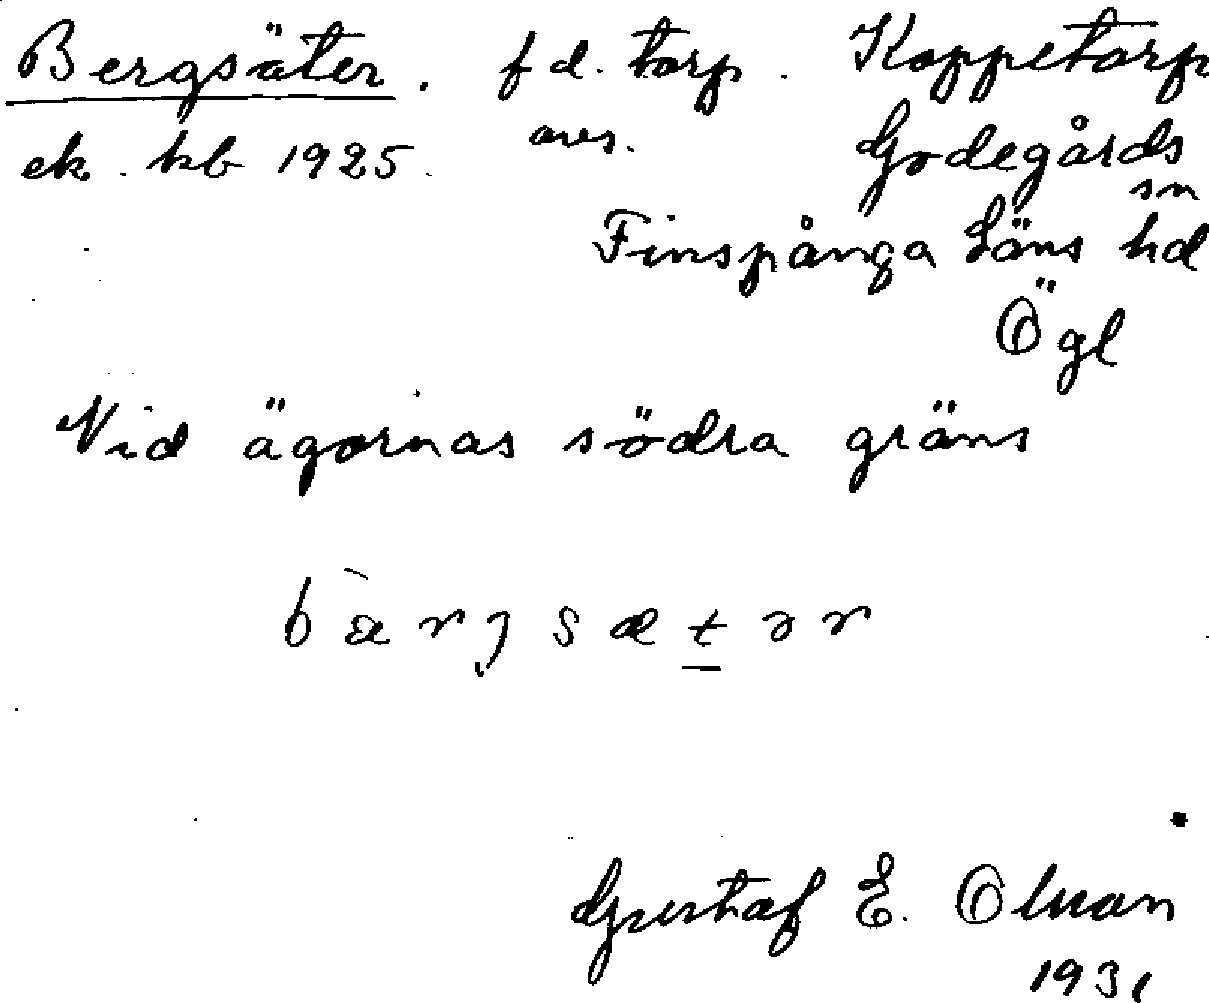 Bergsäter. f d. torp. Koppetorp
ek. kb 1925. avs. Godegårds
sn
Finspånga Läns hd
Ögl
Vid ägornas södra gräns
bæ̀rjsætər
Gustaf E. Olsson
1931